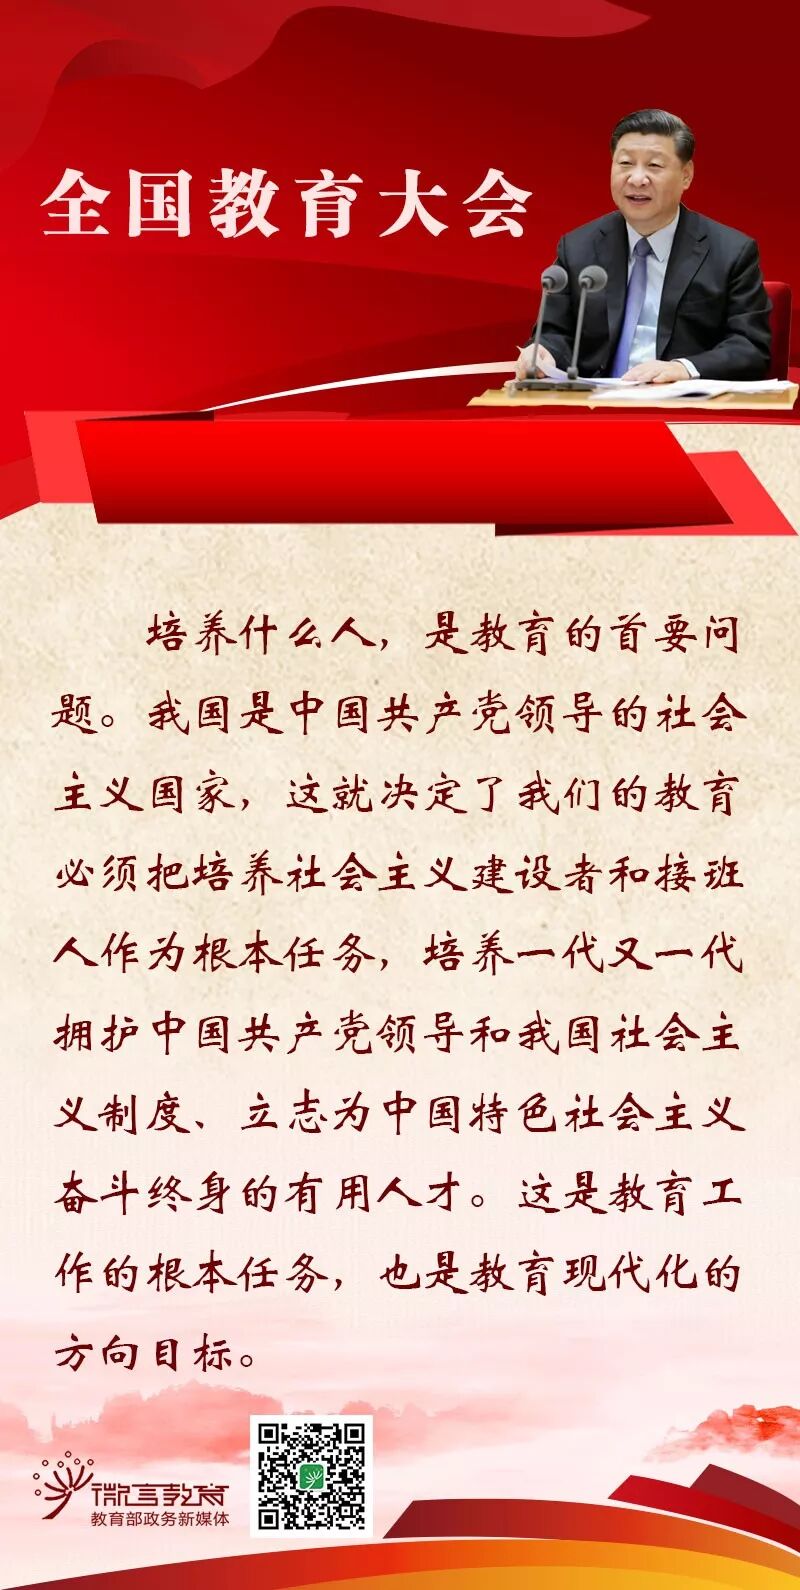 全国教育大会
培养什么人，是教育的首要问
题。我国是中国共产党领导的社会
主义国家，这就决定了我们的教育
必须把培养社会主义建设者和接班
人作为根本任务，培养一代又一代
拥护中国共产党领导和我国社会主
义制度、立志为中国特色社会主义
奋斗终身的有用人才。这是教育工
作的根本任务，也是教育现代化的
方向目标。
微言教育
教育部政务新媒体